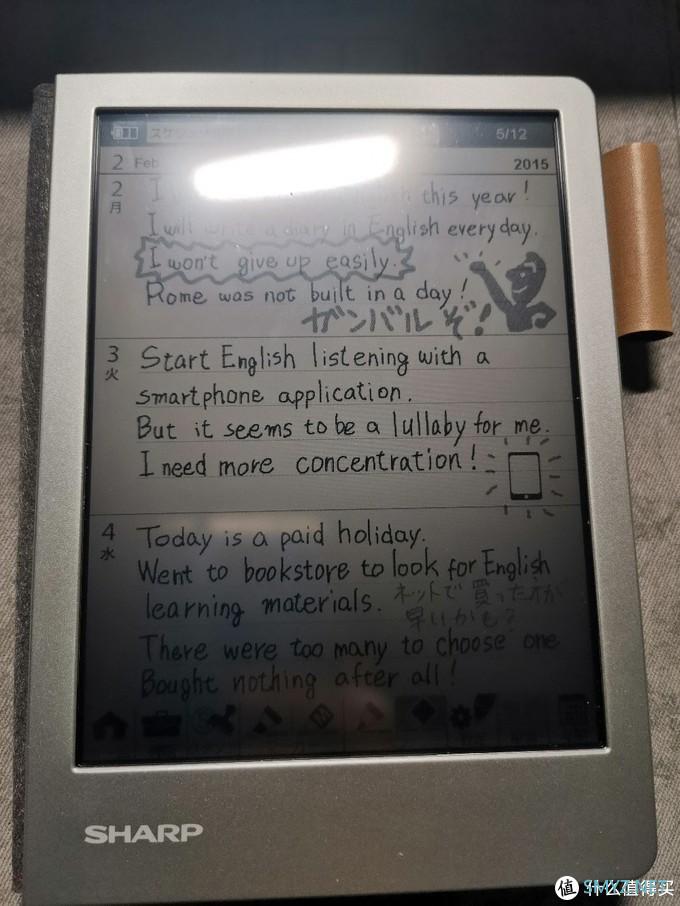 スケジュ 5/12
2 Feb 2015
2 月
I this year!
I will write a diary in English everyday.
I won't give up easily.
Rome was not built in a day!
ガンバルぞ!
3 火
Start English listening with a
smartphone application.
But it seems to be a lullaby for me.
I need more concentration!
4 水
Today is a paid holiday.
Went to bookstore to look for English
learning materials.
ネットで買った方が
早いかも?
There were too many to choose one
Bought nothing after all!
SHARP
值 什么值得买